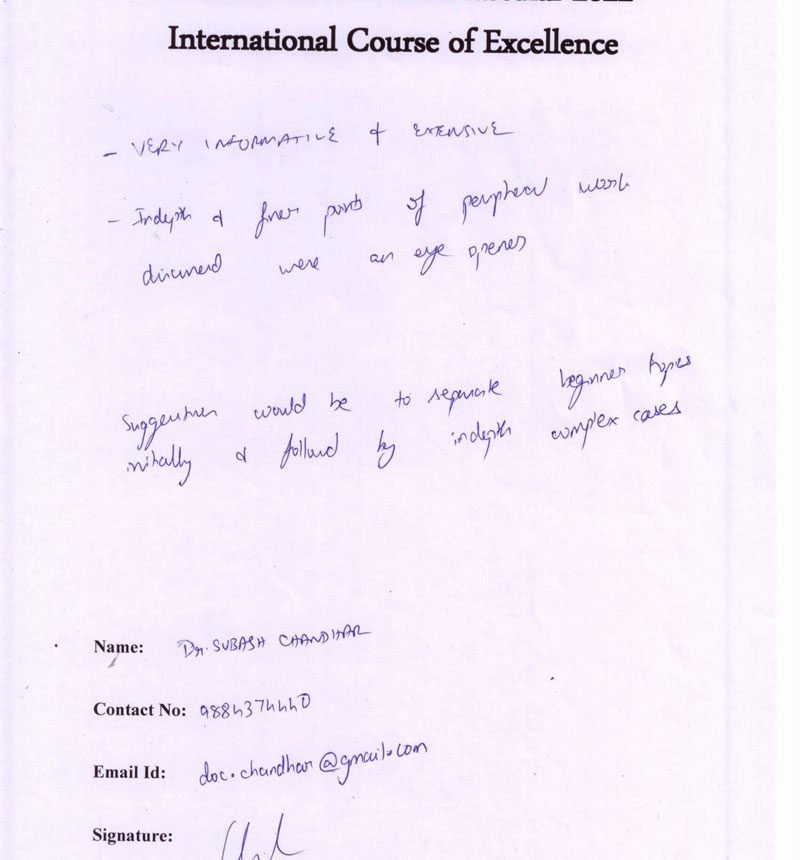 International Course of Excellence
- VERY INFORMATIVE & EXTENSIVE
- Indepth & finer points of peripheral work
discussed were an eye opener
Suggestion would be to separate beginner topics
initially & followed by indepth complex cases
Name: Dr. SUBASH CHANDHAR
Contact No: 9884374440
Email Id: doc.chandhar@gmail.com
Signature: